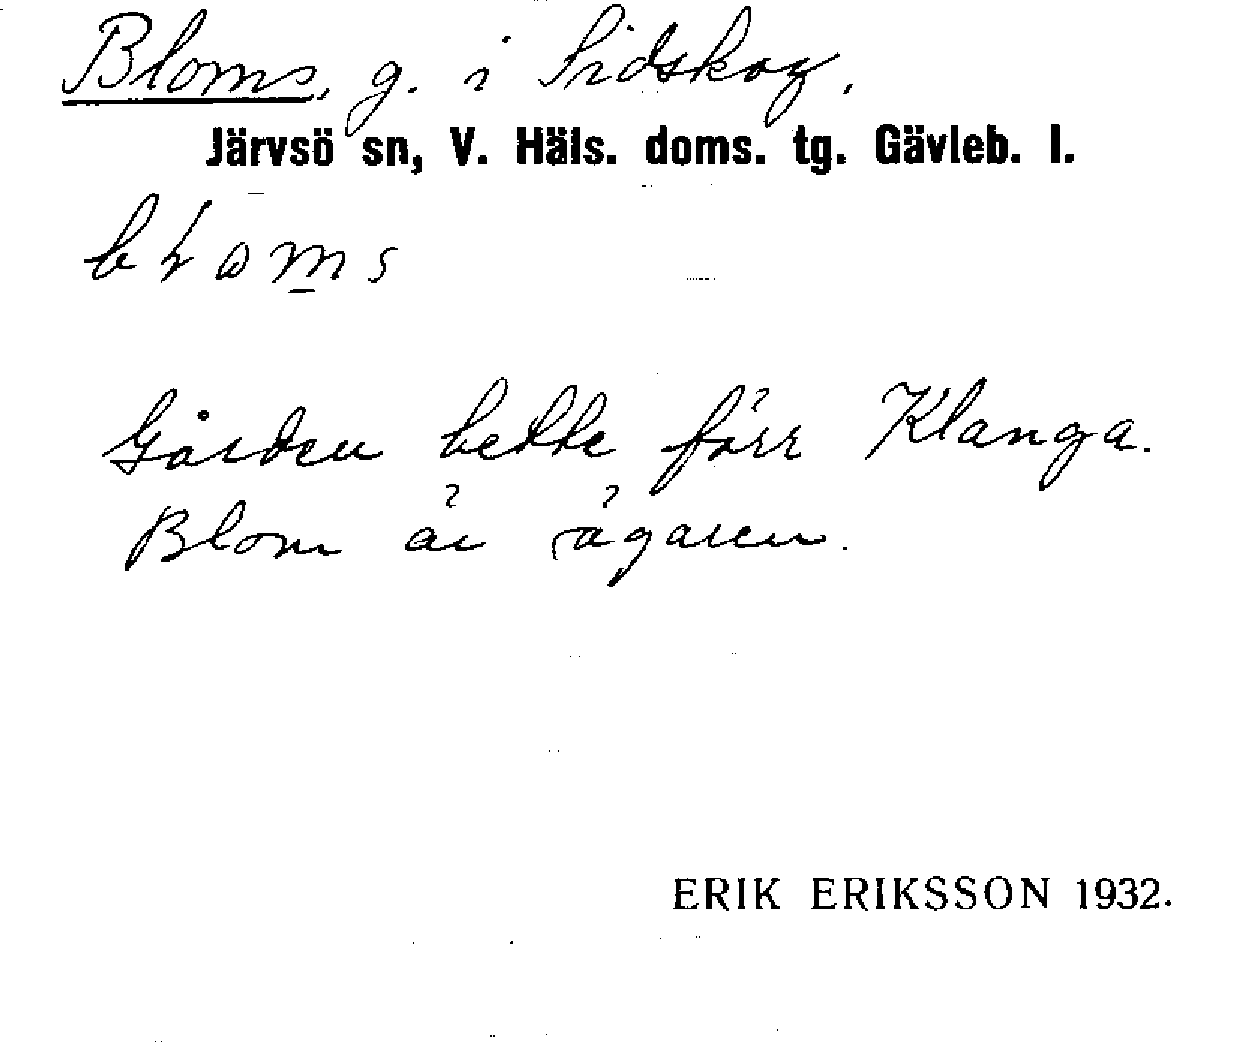 Bloms, g. i Sidskog.
Järvsö sn, V. Häls. doms. tg. Gävleb. l.
bɫoms
Gården hette förr Klanga.
Blom är ägaren.
ERIK ERIKSSON 1932.